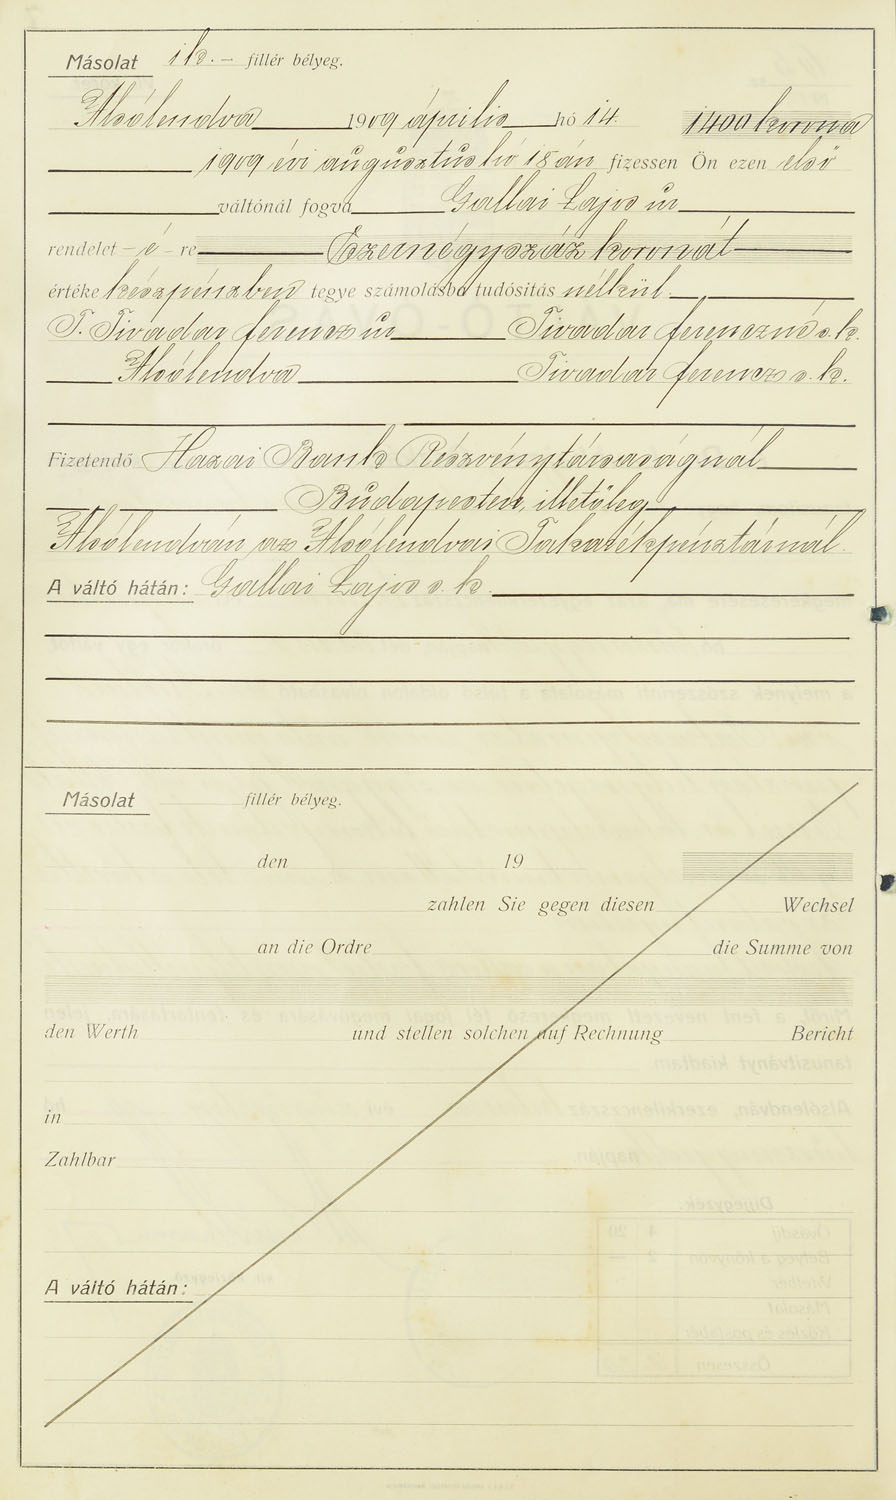 Másolat 1 k. – fillér bélyeg.
Alsólendva 1909 április hó 14. 1400 korona
1909 évi augusztus hó 18 án fizessen Ön ezen első
váltónál fogva Gallai Lajos úr
rendelet – é – re Ezernégyszáz koronát
értéke készpénzben tegye számolásba tudósítás nélkül.
T. Tivadar Ferencz úr Tivadar Ferenczné s. k.
Alsólendva Tivadar Ferencz s. k.
Fizetendő Hazai Bank Részvénytársaságnál
Budapesten, illetőleg
Alsólendván az Alsólendvai Takarékpénztárnál.
A váltó hátán: Gallai Lajos s. k.
Másolat fillér bélyeg.
den 19
zahlen Sie gegen diesen Wechsel
an die Ordre die Summe von
den Werth und stellen solchen auf Rechnung Bericht
in
Zahlbar
A váltó hátán: